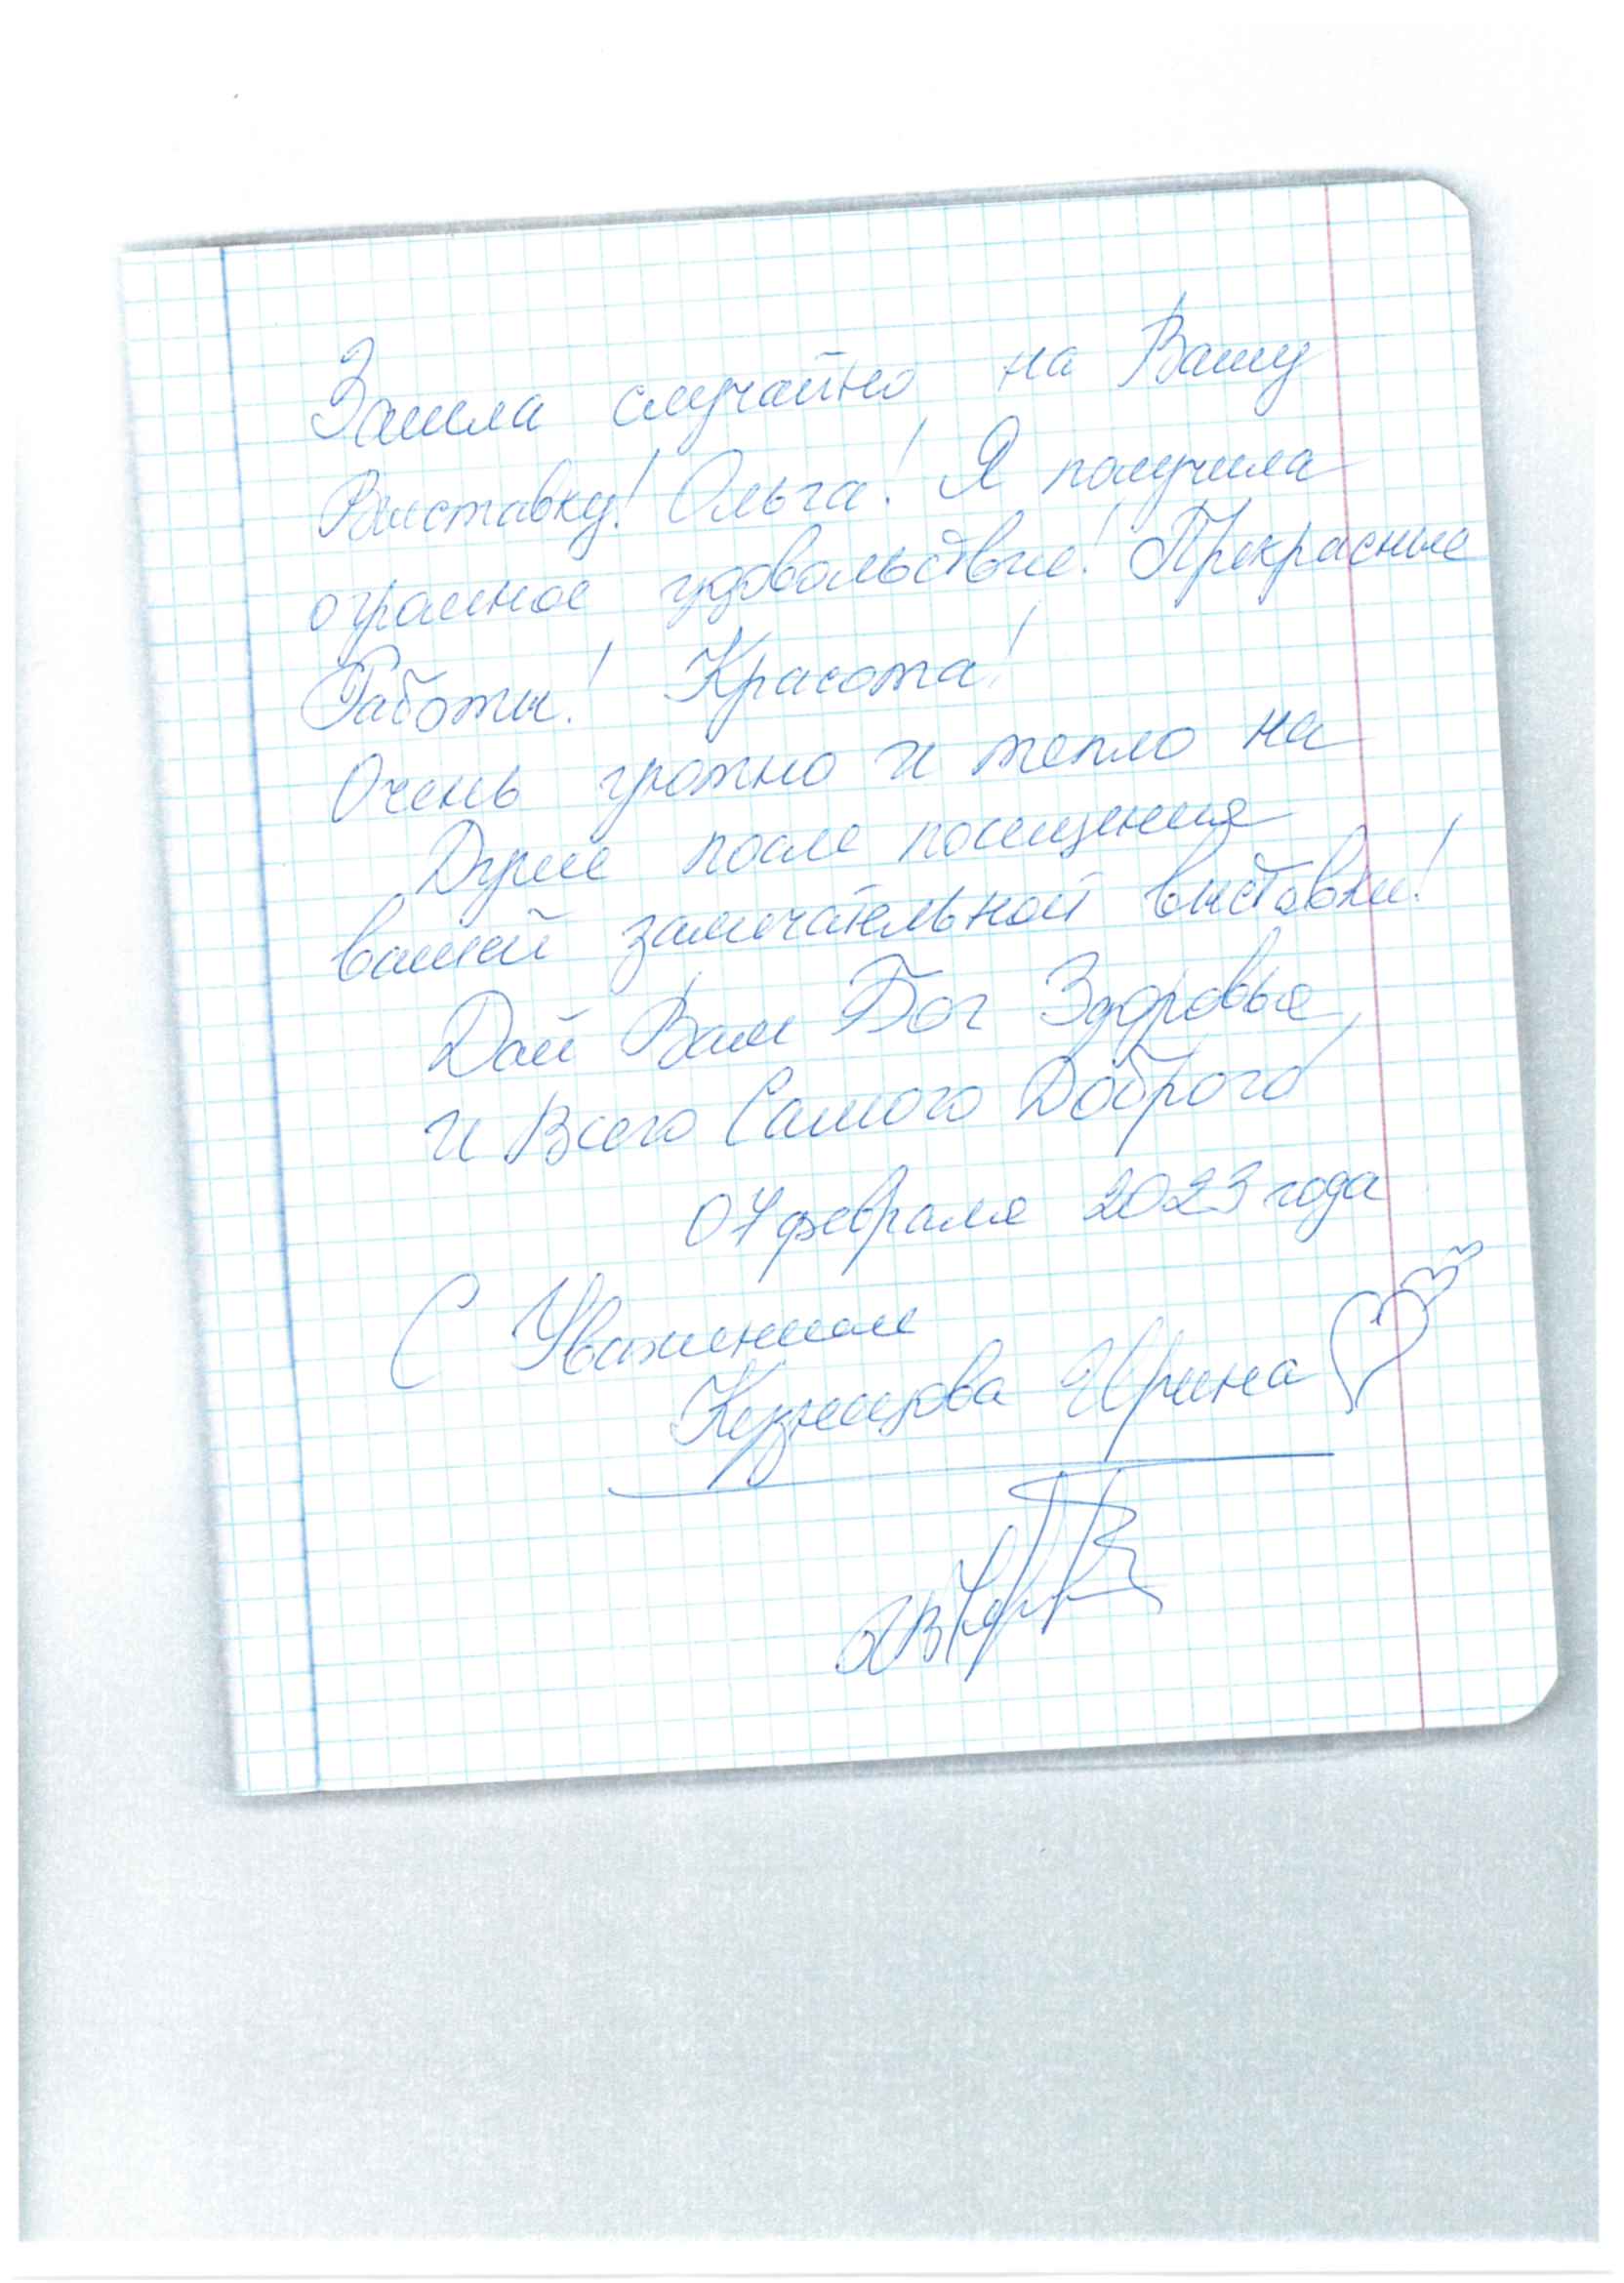 Зашла случайно на Вашу
Выставку! Ольга! Я получила
огромное удовольствие! Прекрасные
Работы! Красота!
Очень уютно и тепло на
Душе после посещения
вашей замечательной выставки!
Дай Вам Бог Здоровья,
и Всего Самого Доброго
07 февраля 2023 года
С Уважением
Кузнецова Ирина